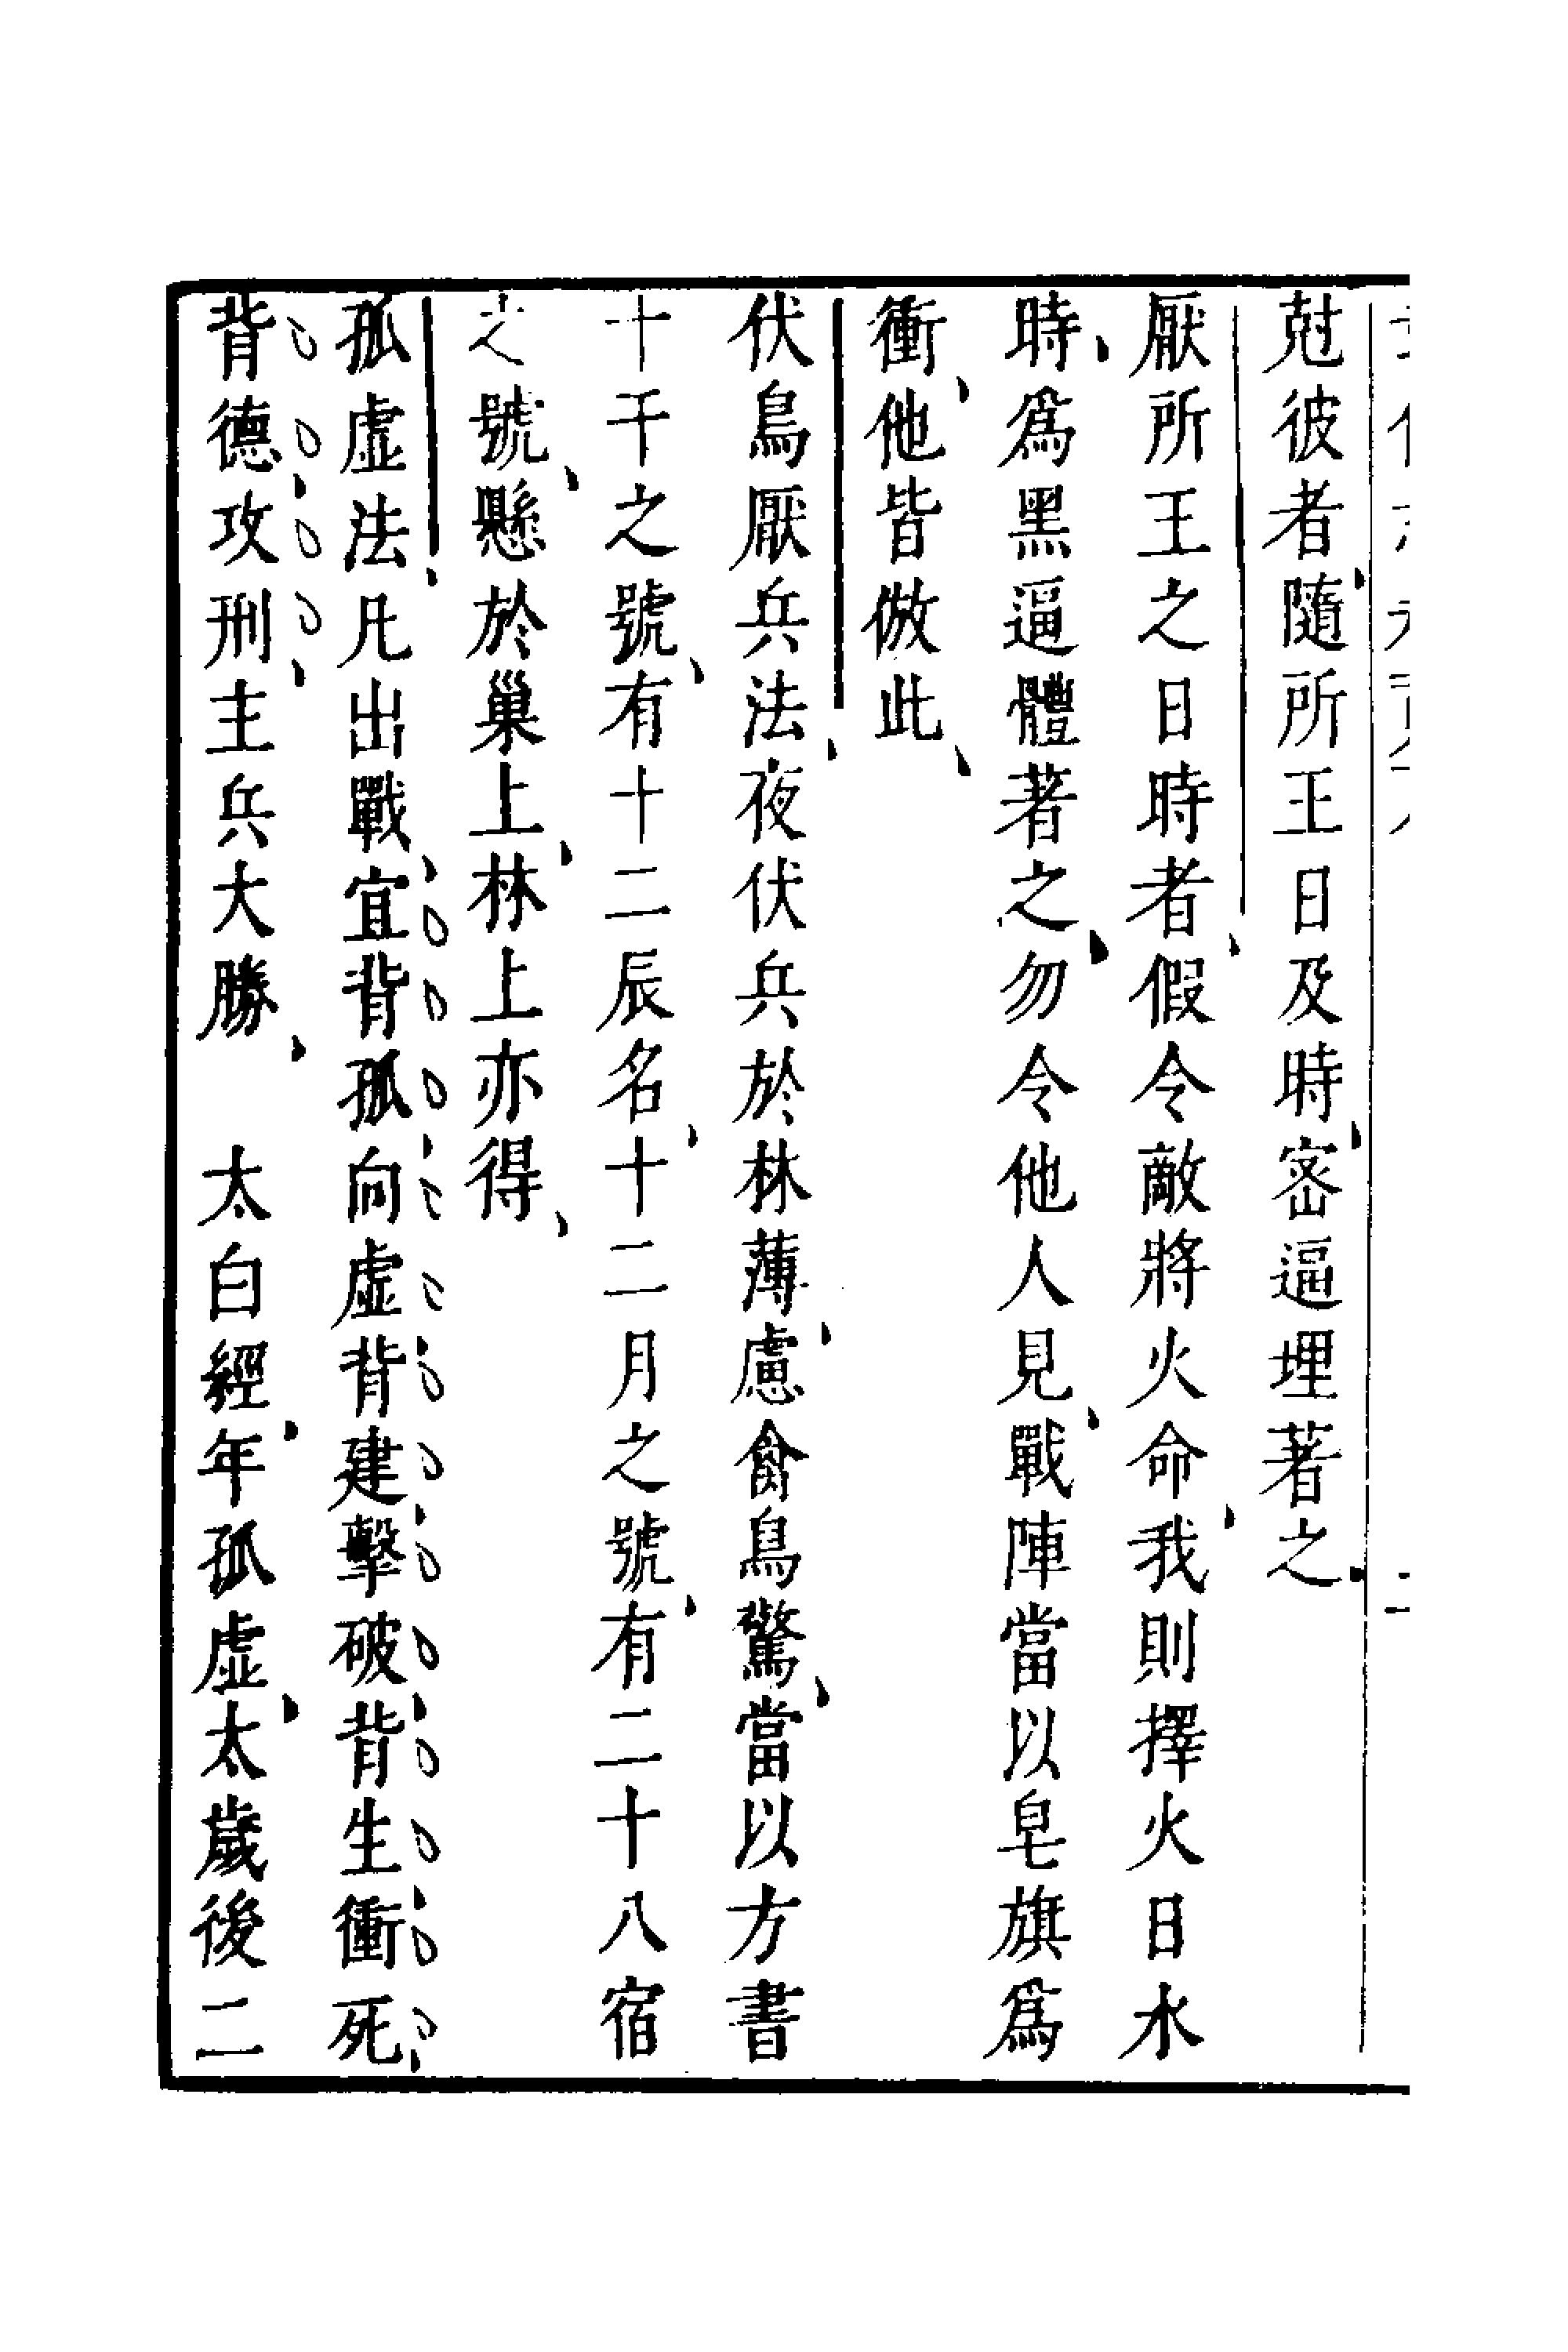 尅彼者隨所王日及時密逼埋著之
厭所王之日時者假令敵將火命我則擇火日水
時爲黑逼體著之勿令他人見戰陣當以皂旗爲
衝他皆倣此
伏鳥厭兵法夜伏兵於林薄慮禽鳥驚當以方書
十干之號有十二辰名十二月之號有二十八宿
之號懸於巢上林上亦得
孤虛法凡出戰宜背孤向虛背建擊破背生衝死
背德攻刑主兵大勝　太白經年孤虛太歲後二